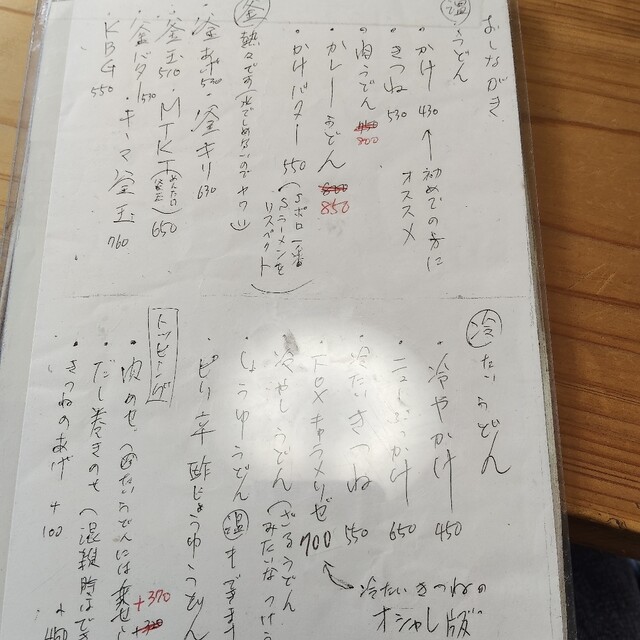 おしながき
温 うどん
・かけ 430 ← 初めての方にオススメ
・きつね 530
・肉うどん 800
・カレーうどん 850
・かけバター 550 (Sポロ一番
Sラーメンを
リスペクト)
釜 熱々です(水でしめないのでヤワい)
・釜あげ 530 ・釜キリ 630
・釜玉 570 ・MTKT 650
・釜バター 530 ・キーマ釜玉 760
・KBG 550
冷 たいうどん
・冷やかけ 450
・ニューぶっかけ 650
・冷たいきつね 550
キャラメリゼ 700 ← 冷たいきつねの
オシャレ版
・冷やしうどん(ざるうどん
みたいなつけう
・しょうゆうどん 温 もできます
・ピリ辛酢じょうゆうどん
トッピング
・肉のせ (冷たいうどんには乗せ +370
・だし巻きのせ (混雑時はでき
・きつねのあげ +100